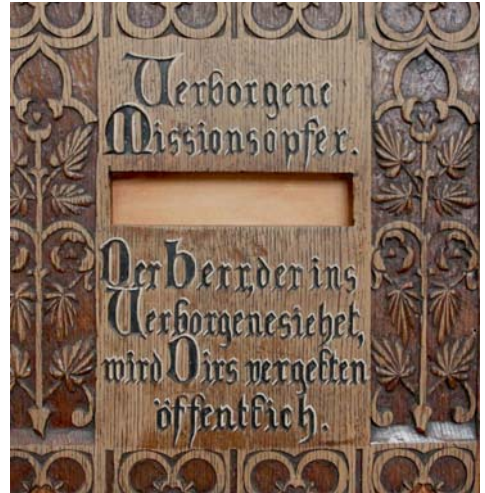 Verborgene
Missionsopfer.
Der Herr, der ins
Verborgene siehet,
wird Dirs vergelten
öffentlich.